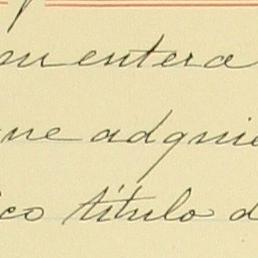 entera
ne adquie
co título d